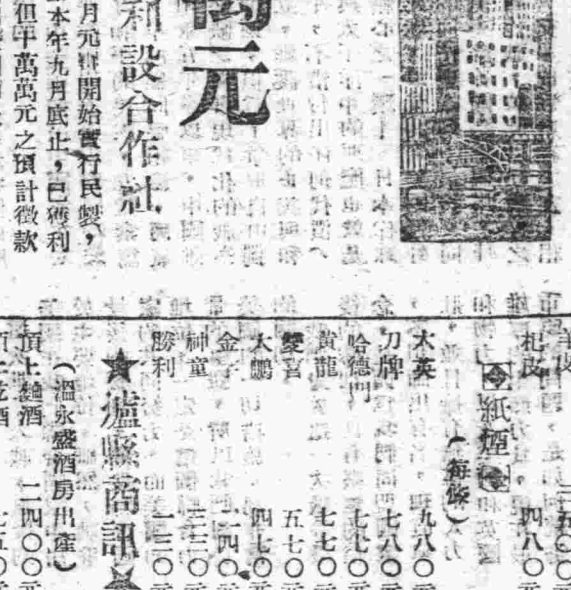 萬元
利設合作社
月元實開始實行民製，
本年九月底止，已獲利
但平萬萬元之預計徵款
羊皮　二五〇〇元
杞皮　四八〇元
紙煙
（每條）
大英　九八〇元
刀牌　七八〇元
哈德門　七七〇元
黃龍　七七〇元
雙喜　五七〇元
大鵬　四七〇元
金字　二四〇元
神童　二三〇元
勝利　一三〇元
★瀘縣商訊★
（溫永盛酒房出產）
頂上麯酒　二四〇〇元